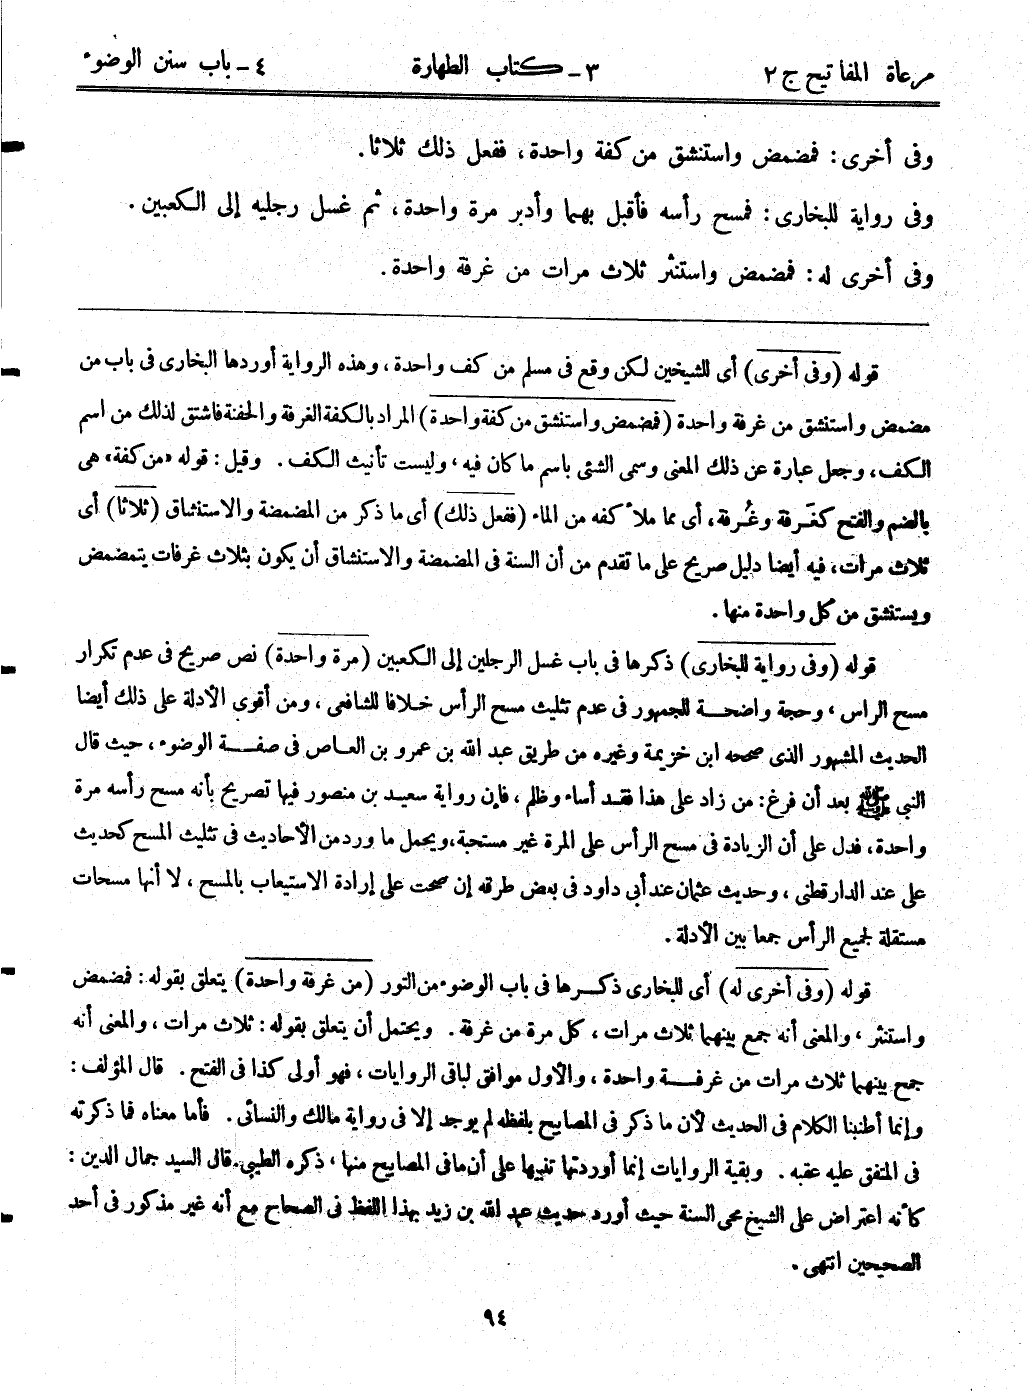 مرعاة المفاتيح ج ٢ ٣ - كتاب الطهارة ٤ - باب سنن الوضوء
وفى أخرى: فمضمض واستنشق من كفة واحدة، ففعل ذلك ثلاثا.
وفى رواية للبخارى: فمسح رأسه فأقبل بهما وأدبر مرة واحدة، ثم غسل رجليه إلى الكعبين.
وفى أخرى له: فمضمض واستنثر ثلاث مرات من غرفة واحدة.
قوله (وفى أخرى) أى للشيخين لكن وقع فى مسلم من كف واحدة، وهذه الرواية أوردها البخارى فى باب من
مضمض واستنشق من غرفة واحدة (فمضمض واستنشق من كفة واحدة) المراد بالكفة الغرفة والحفنة فاشتق لذلك من اسم
الكف، وجعل عبارة عن ذلك المعنى وسمى الشئى باسم ما كان فيه، وليست تأنيث الكف. وقيل: قوله «من كفة» هى
بالضم والفتح كغَرفة وغُرفة، أى مما ملأ كفه من الماء (ففعل ذلك) أى ما ذكر من المضمضة والاستنشاق (ثلاثا) أى
ثلاث مرات، فيه أيضا دليل صريح على ما تقدم من أن السنة فى المضمضة والاستنشاق أن يكون بثلاث غرفات يتمضمض
ويستنشق من كل واحدة منها.
قوله (وفى رواية للبخارى) ذكرها فى باب غسل الرجلين إلى الكعبين (مرة واحدة) نص صريح فى عدم تكرار
مسح الراس، وحجة واضحة للجمهور فى عدم تثليث مسح الرأس خلافا للشافعى، ومن أقوى الأدلة على ذلك أيضا
الحديث المشهور الذى صححه ابن خزيمة وغيره من طريق عبد الله بن عمرو بن العاص فى صفة الوضوء، حيث قال
النبى ﷺ بعد أن فرغ: من زاد على هذا فقد أساء وظلم، فإن رواية سعيد بن منصور فيها تصريح بأنه مسح رأسه مرة
واحدة، فدل على أن الزيادة فى مسح الرأس على المرة غير مستحبة، ويحمل ما ورد من الأحاديث فى تثليث المسح كحديث
على عند الدارقطنى، وحديث عثمان عند أبى داود فى بعض طرقه إن صحت على إرادة الاستيعاب بالمسح، لا أنها مسحات
مستقلة لجميع الرأس جمعا بين الأدلة.
قوله (وفى أخرى له) أى للبخارى ذكرها فى باب الوضوء من التور (من غرفة واحدة) يتعلق بقوله: فمضمض
واستنثر، والمعنى أنه جمع بينهما ثلاث مرات، كل مرة من غرفة. ويحتمل أن يتعلق بقوله: ثلاث مرات، والمعنى أنه
جمع بينهما ثلاث مرات من غرفة واحدة، والأول موافق لباقى الروايات، فهو أولى كذا فى الفتح. قال المؤلف:
وإنما أطنبنا الكلام فى الحديث لأن ما ذكر فى المصابيح بلفظه لم يوجد إلا فى رواية مالك والنسائى. فأما معناه فما ذكرته
فى المتفق عليه عقبه. وبقية الروايات إنما أوردتها تنبيها على أن ما فى المصابيح منها، ذكره الطيبى. قال السيد جمال الدين:
كأنه اعتراض على الشيخ محى السنة حيث أورد حديث عبد الله بن زيد بهذا اللفظ فى الصحاح مع أنه غير مذكور فى أحد
الصحيحين انتهى.
٩٤